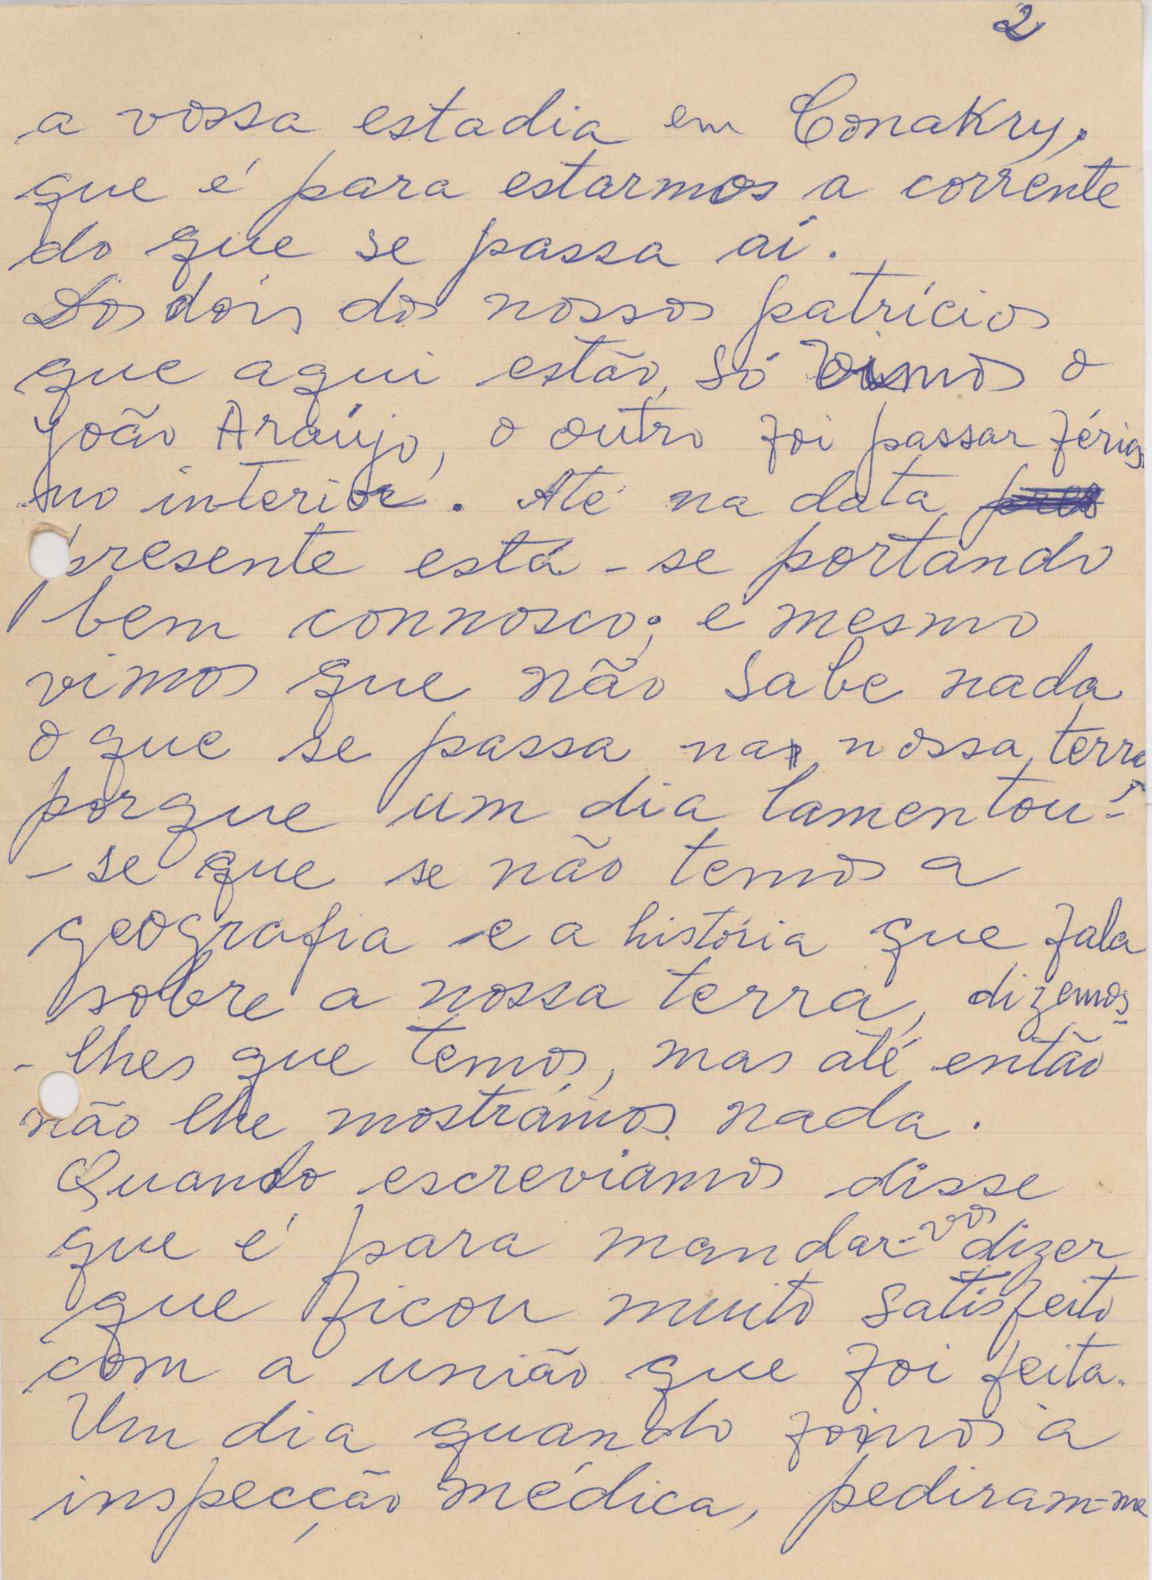 2
a vossa estadia em Conakry,
que é para estarmos a corrente
do que se passa aí.
Dos dois dos nossos patrícios
que aqui estão, só vimos o
João Araújo, o outro foi passar férias
no interior. Até na data
presente está-se portando
bem connosco; e mesmo
vimos que não sabe nada
o que se passa na nossa terra
porque um dia lamentou-
-se que se não temos a
geografia e a história que fala
sobre a nossa terra, dizemos-
-lhes que temos, mas até então
não lhe mostrámos nada.
Quando escreviamos disse
que é para mandar-vos dizer
que ficou muito satisfeito
com a união que foi feita.
Um dia quando foimos à
inspecção médica, pediram-me